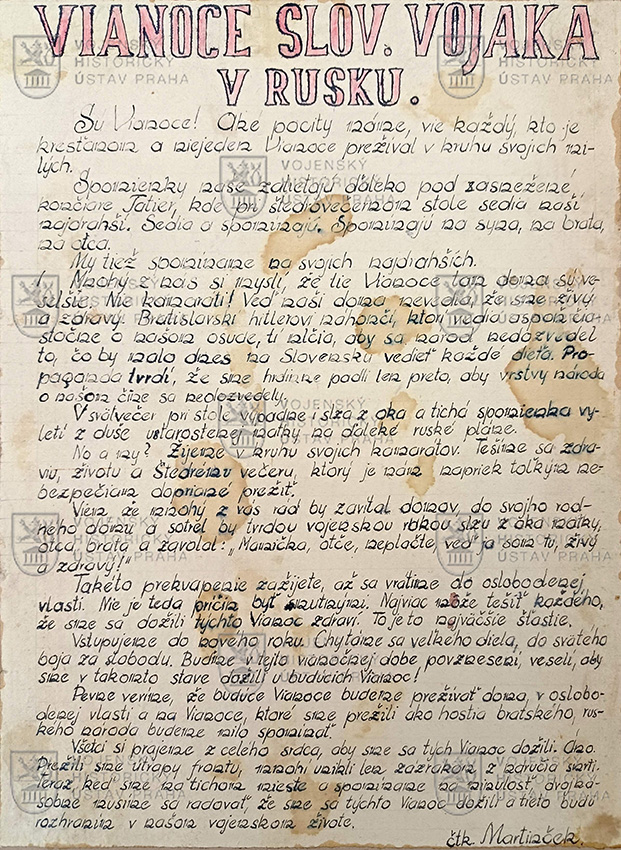 VIANOCE SLOV. VOJAKA
V RUSKU.
Sú Vianoce! Aké pocity máme, vie každý, kto je
kresťanom a niejeden Vianoce prežíval v kruhu svojich mi-
lých.
Spomienky naše zalietajú ďaleko pod zasnežené
končiare Tatier, kde pri štedrovečernom stole sedia naši
najdrahší. Sedia a spomínajú. Spomínajú na syna, na brata,
na otca.
My tiež spomíname na svojich najdrahších.
Mnohý z nás si myslí, že tie Vianoce tam doma sú ve-
selšie. Nie kamaráti! Veď naši doma nevedia, že sme živý
a zdravý. Bratislavskí hitleroví náhončí, ktorí vedia aspoň čia-
stočne o našom osude, tí mlčia, aby sa národ nedozvedel
to, čo by malo dnes na Slovensku vedieť každé dieťa. Pro-
paganda tvrdí, že sme hrdinne padli len preto, aby vrstvy národa
o našom čine sa nedozvedely.
V svätvečer pri stole vypadne i slza z oka a tichá spomienka vy-
letí z duše ustarostenej matky na ďaleké ruské pláne.
No a my? Žijeme v kruhu svojich kamarátov. Tešíme sa zdra-
viu, životu a Štedrému večeru, ktorý je nám napriek toľkým ne-
bezpečiam dopriané prežiť.
Viem, že mnohý z vás rád by zavítal domov, do svojho rod-
ného domu a sotrel by tvrdou vojenskou rukou slzu z oka matky,
otca, brata a zavolal: „Mamička, otče, neplačte, veď ja som tu, živý
a zdravý!"
Takéto prekvapenie zažijete, až sa vrátime do oslobodenej
vlasti. Nie je teda príčin byť smutnými. Najviac môže tešiť každého,
že sme sa dožili týchto Vianoc zdraví. To je to najväčšie šťastie.
Vstupujeme do nového roku. Chytáme sa veľkého diela, do svätého
boja za slobodu. Buďme v tejto vianočnej dobe povznesení, veselí, aby
sme v takomto stave dožili u budúcich Vianoc!
Pevne veríme, že budúce Vianoce budeme prežívať doma, v oslobo-
denej vlasti a na Vianoce, ktoré sme prežili ako hostia bratského, rus-
kého národa budeme milo spomínať.
Všetci si prajeme z celého srdca, aby sme sa tých Vianoc dožili. Áno.
Prežili sme útrapy frontu, mnohí unikli len zázrakom z náručia smrti.
Teraz, keď sme na tichom mieste a spomíname na minulosť, dvojná-
sobne musíme sa radovať, že sme sa týchto Vianoc dožili a tieto budú
rozhraním v našom vojenskom živote.
čtk. Martinček.
VOJENSKÝ
HISTORICKÝ
ÚSTAV PRAHA